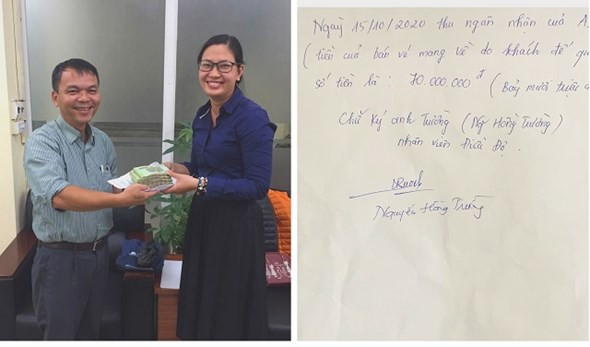 Ngày 15/10/2020 thu ngân nhận của A
(tiền của bán vé mang về do khách để qu
số tiền là : 70.000.000đ (Bảy mươi triệu
Chữ ký anh Trường (Ng Hồng Trường)
nhân viên Điều Độ.
Nguyễn Hồng Trường